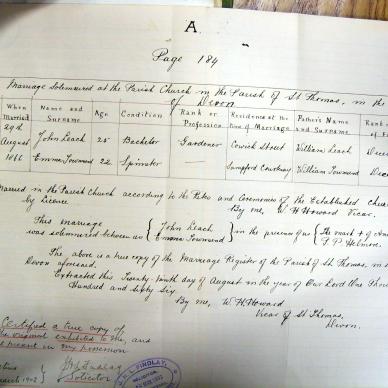 A.
Page 184
Marriage solemnized at the Parish Church in the Parish of St. Thomas, in the
of Devon
When Married Name and Surname Age Condition Rank or Profession Residence at the time of Marriage Father's Name and Surname Rank of F
29th August 1866 John Leach 25 Bachelor Gardener Cowick Street William Leach Dece
Emma Townsend 22 Spinster — Sampford Courtenay William Townsend Dece
Married in the Parish Church according to the Rites and Ceremonies of the Established Chur
by Licence By me, W. H. Howard Vicar.
This marriage was solemnized between us { John Leach Emma Townsend } in the presence of us { The mark + of
The above is a true copy of the Marriage Register of the Parish of St. Thomas, in
Devon aforesaid.
Extracted this Twenty-ninth day of August in the year of Our Lord One Thou
Hundred and Sixty Six
By me, W. H. Howard
Vicar of St. Thomas,
Devon.
Certified a true copy of
the original exhibited to me, and
at present in my possession
Findlay
Solicitor
March 1902
L. FINDLAY